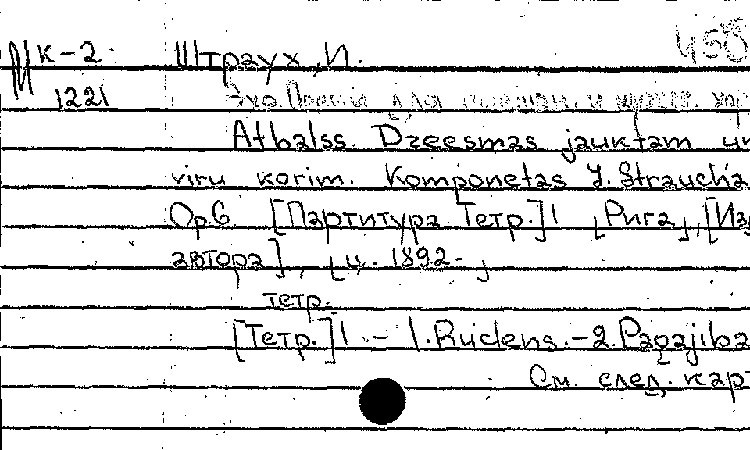 К-2. Штраух, И. 458
1221 Эхо. Песни для смешан. и мужск. хор
Atbalss. Dzeesmas jauktam un
viru korim. Komponetas J. Straucha
Op6 [Партитура Тетр.]1 [Рига], [Изд
автора], [ц. 1892.]
тетр.
[Тетр.]1. - 1. Rudens. - 2. Pagajiba
См. след. карт